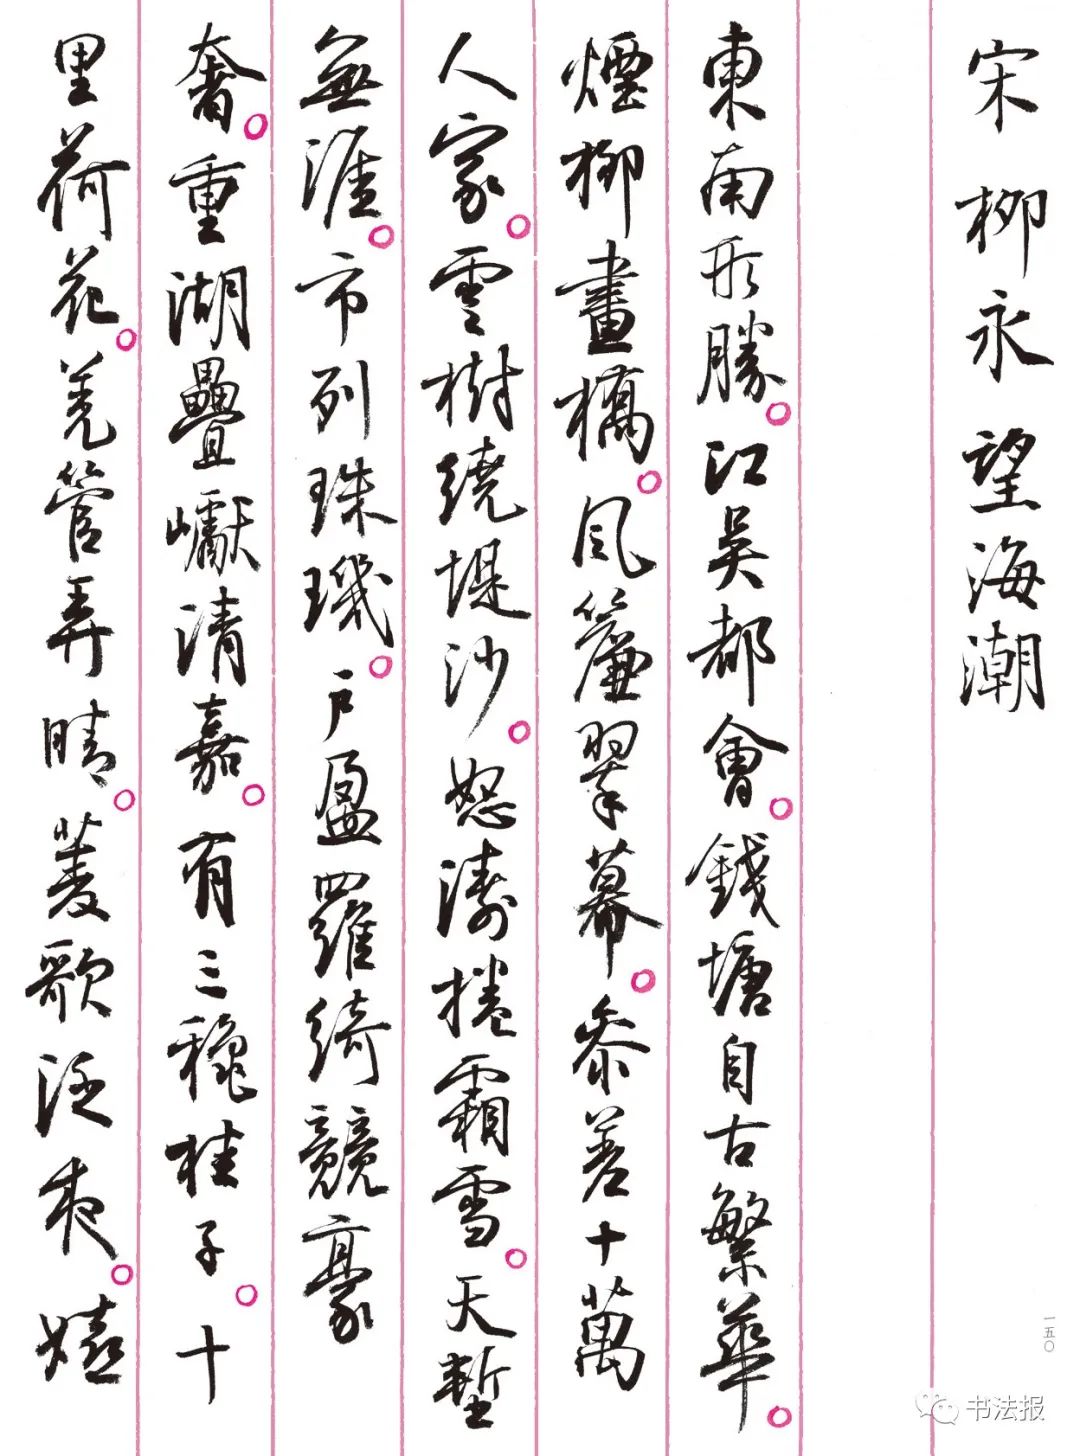 宋 柳永 望海潮
東南形勝。江吳都會。錢塘自古繁華。
煙柳畫橋。風簾翠幕。參差十萬
人家。雲樹繞堤沙。怒濤捲霜雪。天塹
無涯。市列珠璣。戶盈羅綺競豪
奢。重湖疊巘清嘉。有三穐桂子。十
里荷花。羌管弄晴。菱歌泛夜。嬉
一五〇
书法报